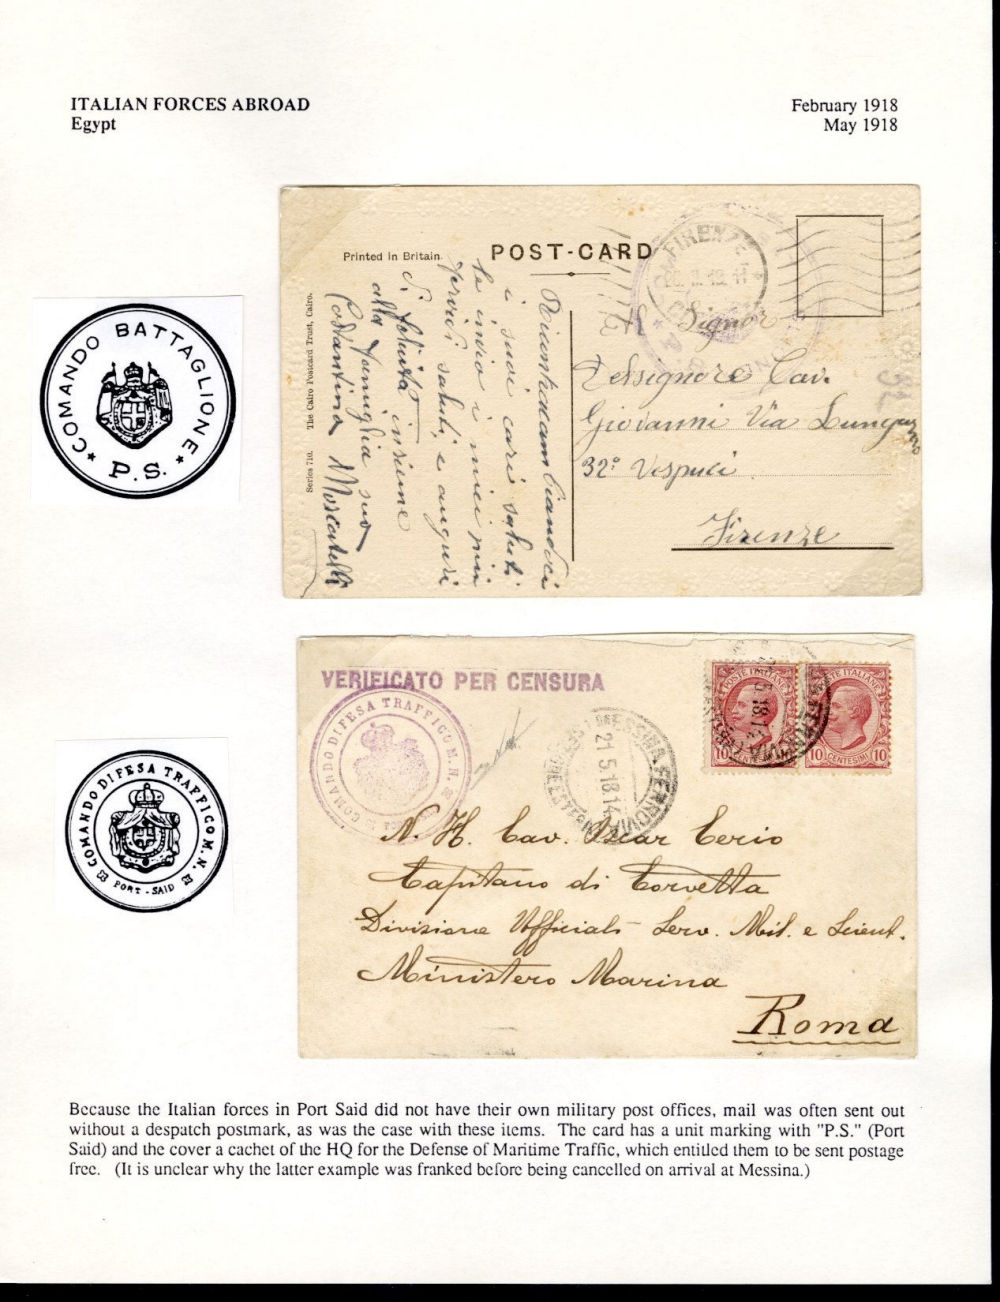 ITALIAN FORCES ABROAD
Egypt
February 1918
May 1918
COMANDO BATTAGLIONE
* P.S. *
Printed in Britain.
POST-CARD
The Cairo Postcard Trust, Cairo.
Series 710.
FIRENZE
Signor
Delsignore Cav.
Giovanni Via Lungarno
32° Vespuci
Firenze
Ricontracambiandoci
i suoi cari saluti
le invio i miei più
fervidi saluti e auguri
di felicità insieme
alla famiglia sua
Costantino Moscatelli
COMANDO DIFESA TRAFFICO M.N.
PORT-SAID
VERIFICATO PER CENSURA
COMANDO DIFESA TRAFFICO M.N.
MESSINA FERROVIA
21 5.18.14
POSTE ITALIANE
10 CENTESIMI 10
POSTE ITALIANE
10 CENTESIMI 10
N. H. Cav. Oscar Cerio
Capitano di Corvetta
Divisione Ufficiali - Serv. Mil. e Scient.
Ministero Marina
Roma
Because the Italian forces in Port Said did not have their own military post offices, mail was often sent out
without a despatch postmark, as was the case with these items. The card has a unit marking with "P.S." (Port
Said) and the cover a cachet of the HQ for the Defense of Maritime Traffic, which entitled them to be sent postage
free. (It is unclear why the latter example was franked before being cancelled on arrival at Messina.)